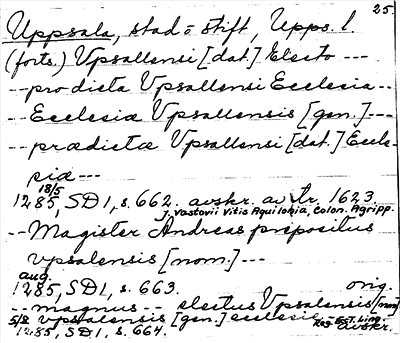 25.
Uppsala, stad o stift, Upps. l
(forts.) Vpsallensi [dat.] Electo ---
-- pro dicta Vpsallensi Ecclesia --
-- Ecclesiæ Vpsallensis [gen.] ---
-- prædictæ Vpsallensi [dat.] Eccle-
siæ ---
18/5
1285, SD1, s. 662. avskr. av tr. 1623.
J. Vastovii Vitis Aquilonia, Colon. Agripp.
-- Magister Andreas prepositus
vpsalensis [nom.] ---
aug.
1285, SD1, s. 663. orig.
-- magnus -- electus Vpsalensis [nom]
5/8 vpsalensis [gen.] ecclesie --
1285, SD1, s. 664. avskr.